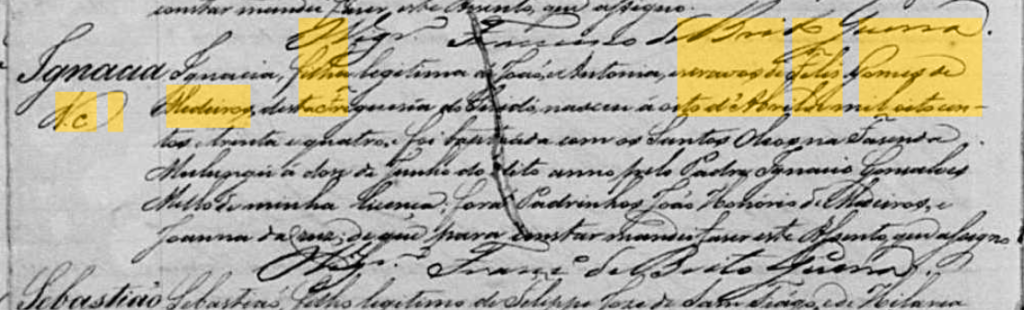 constar mandei fazer este Assento, que assigno.
Vigr.º Francisco de Brito Guerra.
Ignacia Ignacia, filha legitima de João, e Antonia, escravos de Felis Gomes de
N.c. Medeiros, desta Freguesia do nasceu á oito d'Abril de mil oito cen-
tos, e trinta e quatro, e foi baptizada com os Santos Oleos na Fazenda
Mulungú á doze de Junho do dito anno pelo Padre Ignacio Gonsalves
Mello de minha licença. Forão Padrinhos João Honorio de Medeiros, e
Joanna da Cruz; de que para constar mandei fazer este Assento, que assigno
Vigr.º Franc.º de Brito Guerra.
Sebastião Sebastião, filho legitimo de Felippe Joze de San Tiago, e de Hilaria